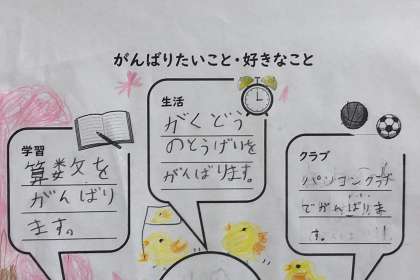 がんばりたいこと・好きなこと
学習
算数文を
がんばり
ます。
生活
がくどう
のとうばいを
がんばります。
クラブ
パソコンクラブ
でがんばりま
す。